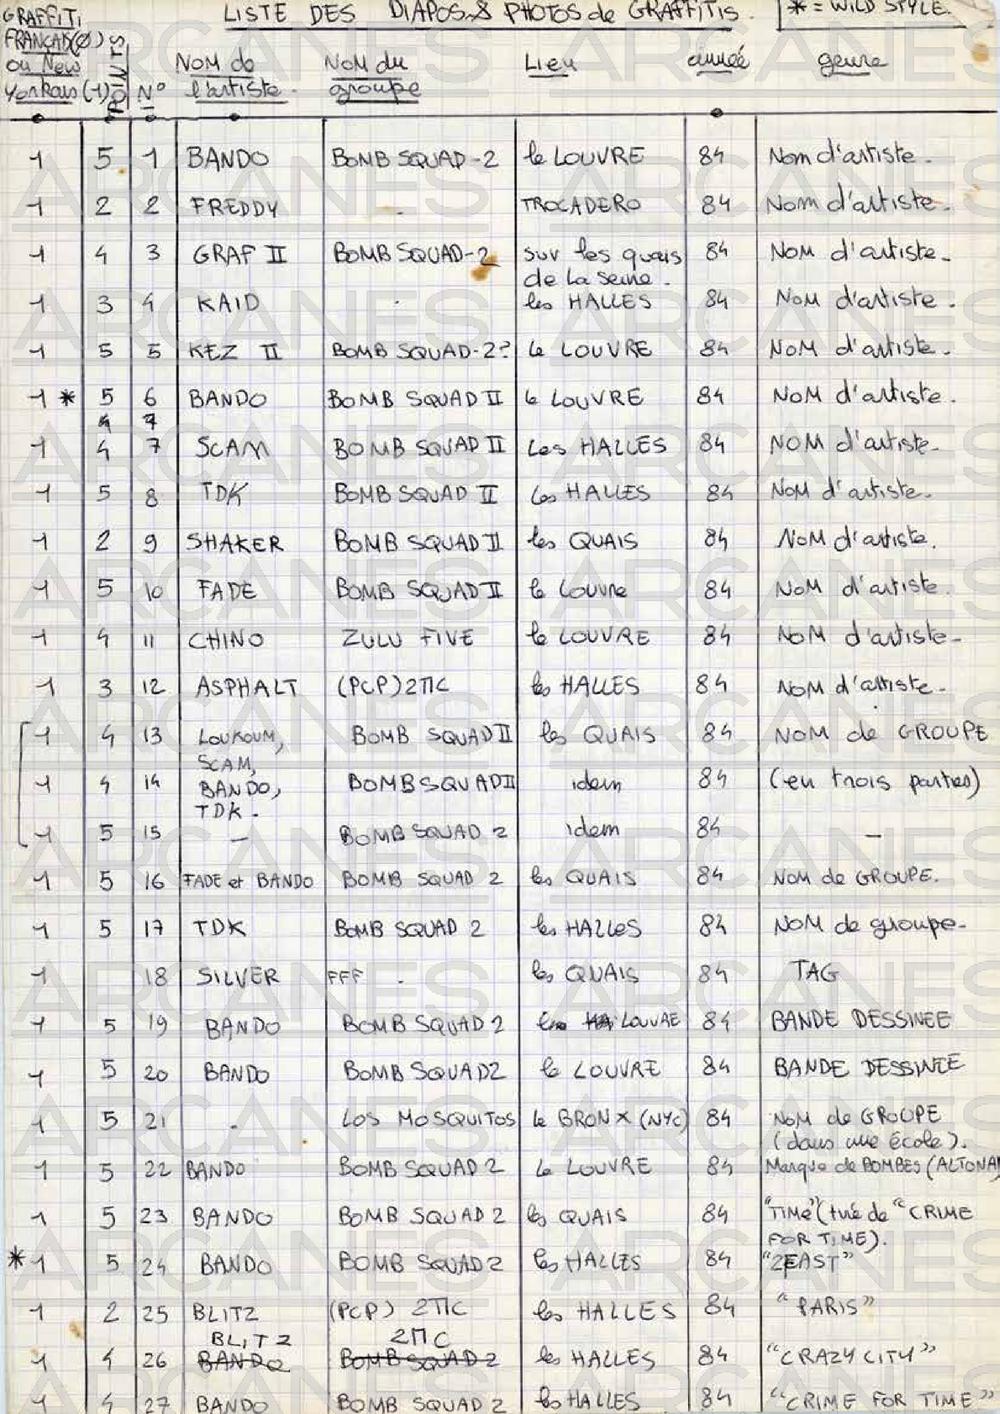 GRAFFITI
FRANÇAIS(Ø)
ou New
Yorkais (1) POINTS N° Nom de l'artiste. Nom du groupe Lieu année genre
LISTE DES DIAPOS & PHOTOS de GRAFFITIS. * = WILD STYLE.
1 5 1 BANDO BOMB SQUAD-2 le LOUVRE 84 Nom d'artiste.
1 2 2 FREDDY . TROCADERO 84 Nom d'artiste.
1 4 3 GRAF II BOMB SQUAD-2 sur les quais 84 Nom d'artiste.
de La Seine.
1 3 4 KAID . les HALLES 84 NOM d'artiste.
1 5 5 KEZ II BOMB SQUAD-2? le LOUVRE 84 NOM d'artiste.
1 * 5 6 BANDO BOMB SQUAD II le LOUVRE 84 NOM d'artiste.
4 7
1 4 7 SCAM BOMB SQUAD II Les HALLES 84 NOM d'artiste.
1 5 8 TDK BOMB SQUAD II les HALLES 84 NOM d'artiste.
1 2 9 SHAKER BOMB SQUAD II les QUAIS 84 NOM d'artiste.
1 5 10 FADE BOMB SQUAD II le Louvre 84 NOM d'artiste.
1 4 11 CHINO ZULU FIVE le LOUVRE 84 NOM d'artiste-
1 3 12 ASPHALT (PCP) 2TIC les HALLES 84 NOM d'artiste.
1 4 13 LOUKOUM, BOMB SQUAD II les QUAIS 84 NOM de GROUPE
SCAM,
1 4 14 BANDO, BOMB SQUAD II idem 84 (en trois parties)
TDK.
1 5 15 — BOMB SQUAD 2 idem 84 —
1 5 16 FADE et BANDO BOMB SQUAD 2 les QUAIS 84 NOM de GROUPE.
1 5 17 TDK BOMB SQUAD 2 les HALLES 84 NOM de groupe.
1 18 SILVER FFF . les QUAIS 84 TAG
1 5 19 BANDO BOMB SQUAD 2 les HA LOUVRE 84 BANDE DESSINEE
1 5 20 BANDO BOMB SQUAD2 le LOUVRE 84 BANDE DESSINEE
1 5 21 . LOS MOSQUITOS le BRONX (NYC) 84 NOM de GROUPE
(dans une école).
1 5 22 BANDO BOMB SQUAD 2 le LOUVRE 84 Marque de BOMBES (ALTONA)
1 5 23 BANDO BOMB SQUAD 2 les QUAIS 84 "TIME" (tiré de "CRIME
FOR TIME).
* 1 5 24 BANDO BOMB SQUAD 2 les HALLES 84 "2EAST"
1 2 25 BLITZ (PCP) 2TIC les HALLES 84 "PARIS"
BLITZ 2TIC
1 4 26 BANDO BOMB SQUAD 2 les HALLES 84 "CRAZY CITY"
1 4 27 BANDO BOMB SQUAD 2 les HALLES 84 "CRIME FOR TIME"
ARCANES